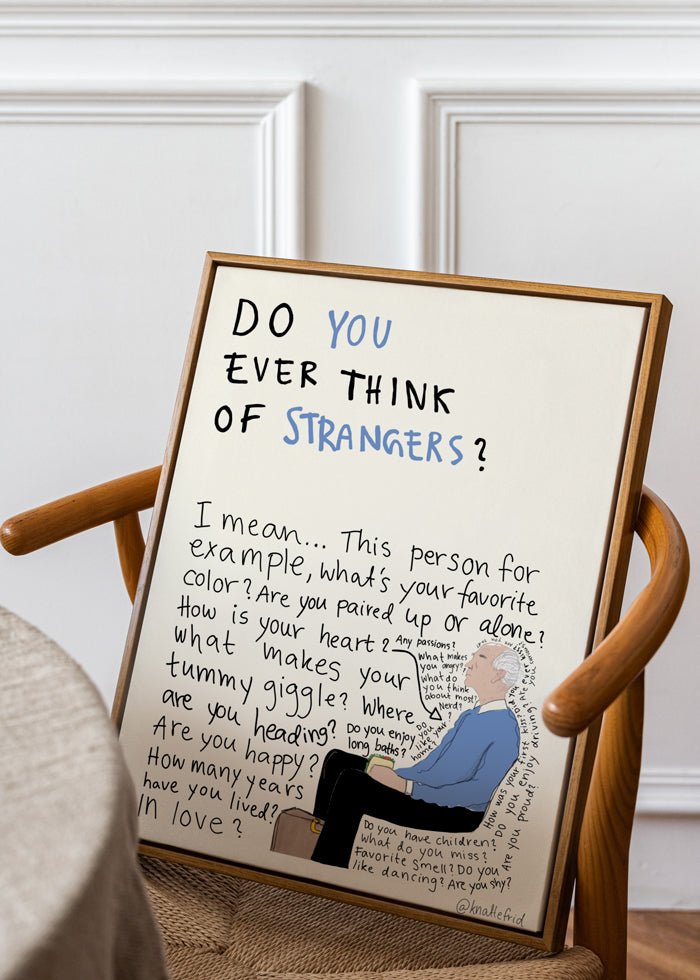 DO YOU
EVER THINK
OF STRANGERS?
I mean... This person for
example, what's your favorite
color? Are you paired up or alone?
How is your heart?
what makes your
tummy giggle? Where
are you heading?
Are you happy?
How many years
have you lived?
In love?
Any passions?
What makes
you angry?
What do
you think
about most?
Nerd?
Do
you
like your
home?
Do you enjoy
long baths?
How was your first kiss?
Do you enjoy driving
Are you proud?
Do you have children?
What do you miss?
Favorite smell? Do you
like dancing? Are you shy?
@knattefrid